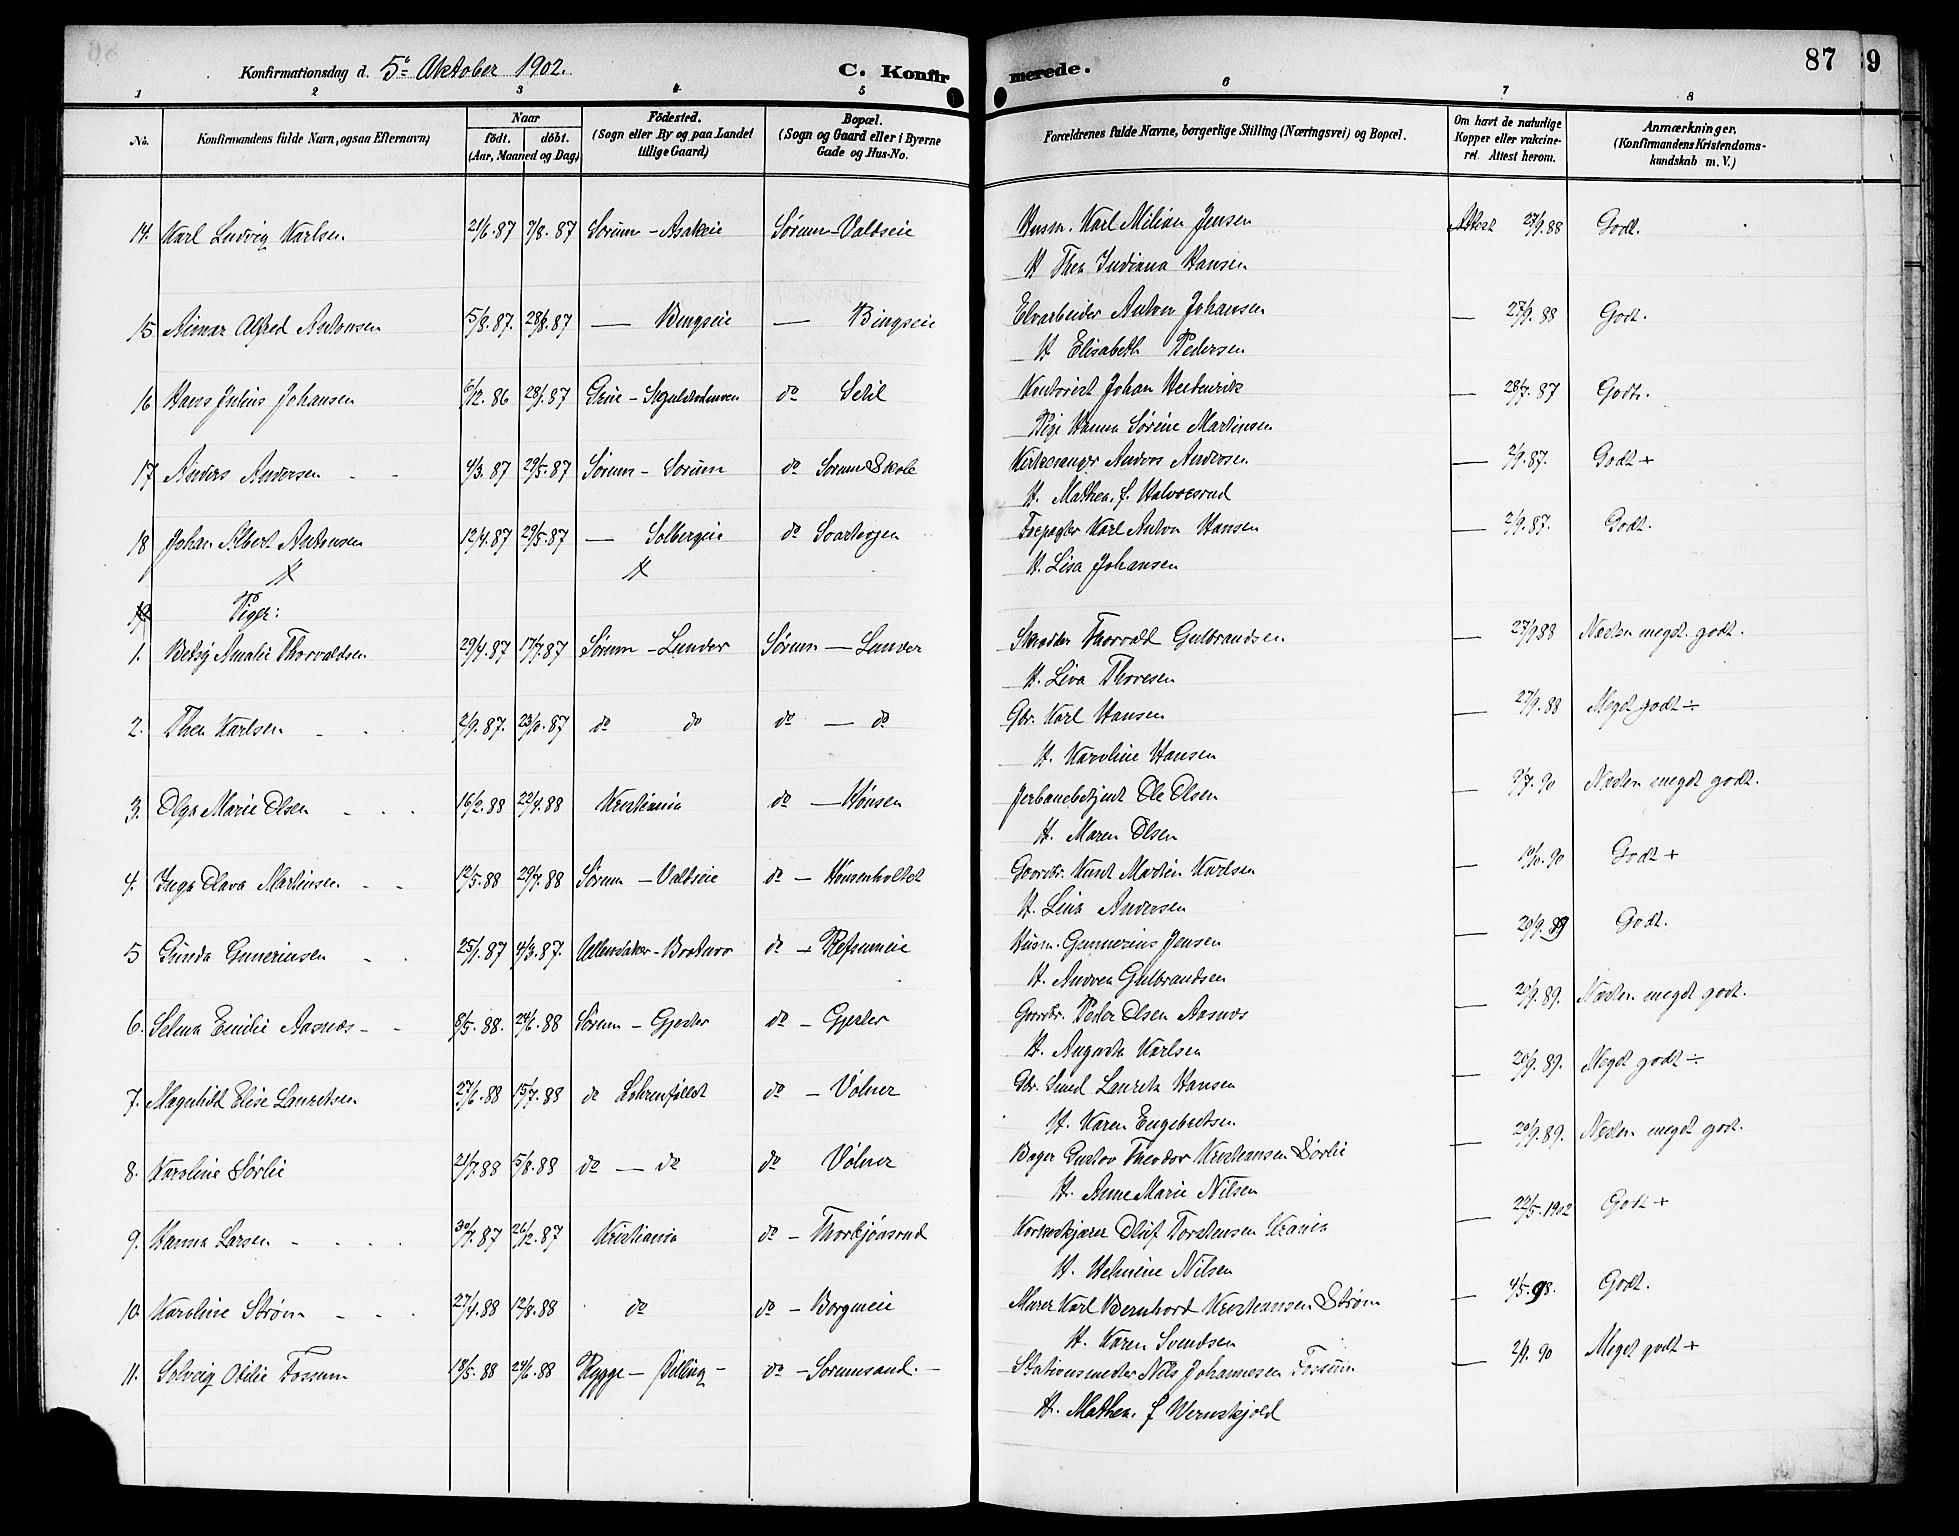 Konfirmationsdag d. 5te Oktober 1902.
C. Konfirmerede.
87
9
1 2 3 4 5 6 7 8
No.
Konfirmandens fulde Navn, ogsaa Efternavn)
Naar
födt. döbt.
(Aar, Maaned og Dag)
Födested.
(Sogn eller By og paa Landet
tillige Gaard)
Bopæl.
(Sogn og Gaard eller i Byerne
Gade og Hus-No.
Forældrenes fulde Navne, borgerlige Stilling (Næringsvei) og Bopæl.
Om havt de naturlige
Kopper eller vakcine-
ret. Attest herom.
Anmærkninger.
(Konfirmandens Kristendoms-
kundskab m. V.)
14. Karl Ludvig Karlsen 21/6.87 7/8.87 Sørum - Asakeie Sørum - Valdseie Husm. Karl Milian Jensen Attest 27/9.88 Godt.
H Thea Indiana Hansen
15 Alfred Antonsen 5/8.87. 28/8.87 — Bingseie — Bingseie Elvarbeider Anton Johansen — 27/9.88 Godt.
H Elisabeth Pedersen
16 Hans Julius Johansen 6/12.86 Grue - do Kontorist Johan — 28/7.87 Godt.
Pige Hanna Sørine Martinsen
17 Anders Andersen - - 4/3.87 29/5.87 Sørum - Sørum do Sørum Skole Kirkesanger Anders Andersen — 2/9.87. Godt +
H. Mathea, f. Halvorsrud
18 Johan Albert Antonsen 12/4.87 29/5.87 — Solbergeie do Svartvogen Forpagter Karl Anton Hansen — 2/9.87. Godt.
H. Lisa Johansen
19
Piger:
1. Betsy Amalie Thorvaldsen 29/4.87 17/7.87 Sørum - Lunder Sørum — Lunder Skrædder Thorvald Gulbrandsen — 27/9 88 Næsten meget godt.
H. Lina Thoresen
2. Thea Karlsen - - 2/9.87. 23/10.87 do do do — do Gbr. Karl Hansen — 27/9.88 Meget godt ÷
H. Karoline Hansen
3. Olga Marie Olsen - - - 16/2.88 22/4.88 Kristiania do — Hønsen Jerbanebetjent Ole Olsen — 9/7.90 Næsten meget godt.
H. Maren Olsen
4. Inga Olava Martinsen - - 12/5.88 29/7.88 Sørum - Valdseie do - Hønsenholtet Gaardbr. Knut Martin Karlsen — 90 Godt +
H. Lina Andersen
5 Gunda Gunneriusen - - 25/1.87 4/3.87. Ullensaker - do - Refsumeie Husm. Gunnerius Jensen — 20/9.89 Godt.
H. Andrea Gulbrandsen
6. Selma Emilie Aasnæs - - 8/5.88. 24/6.88 Sørum - Gjester do - Gjester Gaardbr. Peder Olsen Aasnæs — 20/9.89. Næsten meget godt.
H. Augusta Karlsen
7. Magnhild Elise Lauritsen 27/6.88 15/7.88 do do - Vølner Gbr. Smed Laurits Hansen — 20/9.89. Meget godt ÷
H. Karen Engebretsen
8. Karoline Sørlie 21/7.88 5/8.88 do — do do Vølner Bager Gustav Theodor Kristiansen Sørlie — 20/9.89. Næsten meget godt.
H. Anne Marie Nilsen
9. Hanna Larsen - - - - 30/7.87 26/12.87 Kristiania do - Thorbjørnsrud Olüf Torstensen Krania — 22/5.1902 Godt +
H. Helmine Nilsen
10. Karoline Strøm - - - 27/4.88 12/8.88 do do - Borgneie Murer Karl Bernhard Kristiansen Strøm — 4/5.98. Godt.
H. Karen Svendsen
11. Solveig Otilie Fossum 18/5.88 24/6.88 Rygge - Dilling - do - Sørumsand. - Stationsmester Nils Johannesen Fossum — 2/1.90 Meget godt +
H. Mathea, f Wernskjold